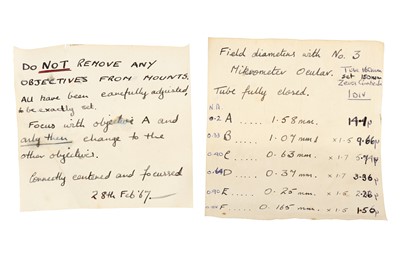 Do NOT REMOVE ANY
OBJECTIVES FROM MOUNTS.
All have been carefully adjusted,
to be exactly set.
Focus with objective A and
only then change to the
other objectives.
Correctly centered and focussed
28th Feb '67.
Field diameters with No. 3
Mikrometer Ocular.
Tube fully closed.
Tube
set 160mm
1 DIV
N.A.
0.2 A ..... 1.58 mm. 14.1µ
B ..... 1.07 mm × 1.5 9.66µ
0.40 C .... 0.63 mm. × 1.7
D .... 0.37 mm. × 1.7 3.36µ
0.90 E .... 0.25 mm. × 1.5 2.26µ
F .... 0.165 mm. × 1.5 1.50µ